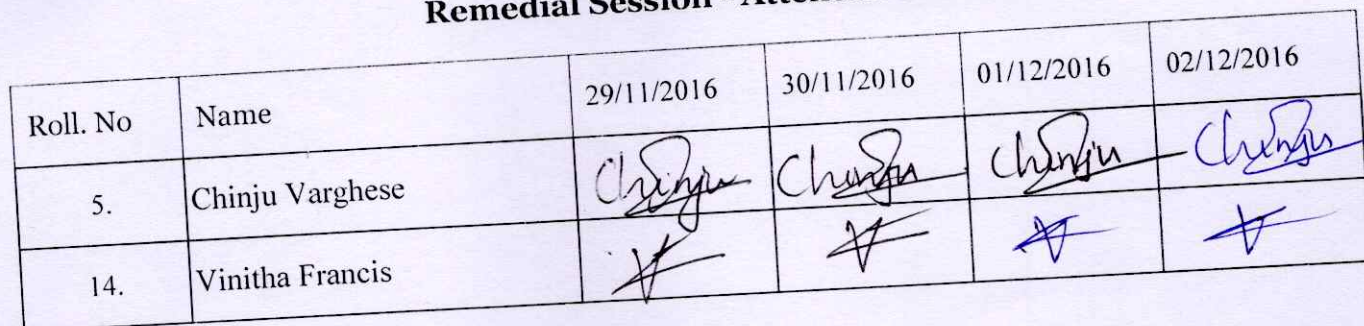 Remedial Session - Atten
Roll. No Name 29/11/2016 30/11/2016 01/12/2016 02/12/2016
5. Chinju Varghese Chinju Chinju Chinju Chinju
14. Vinitha Francis